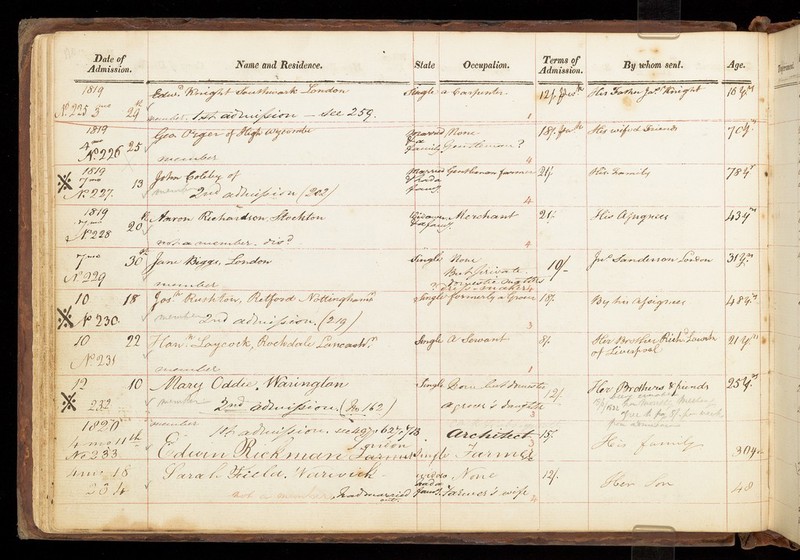 Date of Admission. Name and Residence. State Occupation. Terms of Admission. By whom sent. Age.
1819 Edwd. Knight Southwark London Single a Carpenter 12/. His Father Jas. Knight 16 yrs
No. 225 3 mo 29th member. 1st admission - see 259. 1
1819 Geo. Orger of High Wycombe Married None 18/. His wife & Friends 70 yrs
No. 226 25 & a family Gentleman?
member 4
1819 John Colsby of Married Gentleman farmer 21/. His Family 78 yrs
7 mo 13
No. 227. member 2nd admission (202) 4
1819 Aaron Richardson, Stockton Widower Merchant 21/. His Assignees 43 yrs
7 mo 20th & a family
No. 228 not a member. disd. 4
7 mo 30th Jane Biggs, London Single None 10/- Jno. Sanderson London 31 yrs
No. 229 But private domestic
member
10 18 Josh. Rushton, Retford Nottinghams. Single formerly a Grocer 18/. By his Assignees 48 yrs
No. 230. member 2nd admission. (219) 3
10 22 Hanh. Laycock, Rochdale Lancashr. Single A Servant 8/. Her Brother of Liverpool 21 yrs
No. 231 member 1
12 10 Mary Oddie, Warington Single 12/. Her Brothers & friends 25 yrs
232 member 2nd admission. (No 162) a grocer's daughter
1820 member 1st admission. see Architect 15/.
4 mo 11th London
No. 233 Edwin Rickman Single Farmer His family 30 yrs
4 mo 18 Sarah Field. Warwick widow None 12/. Her Son 48
234 not a member, had married out. and a famy. Farmer's wife 4